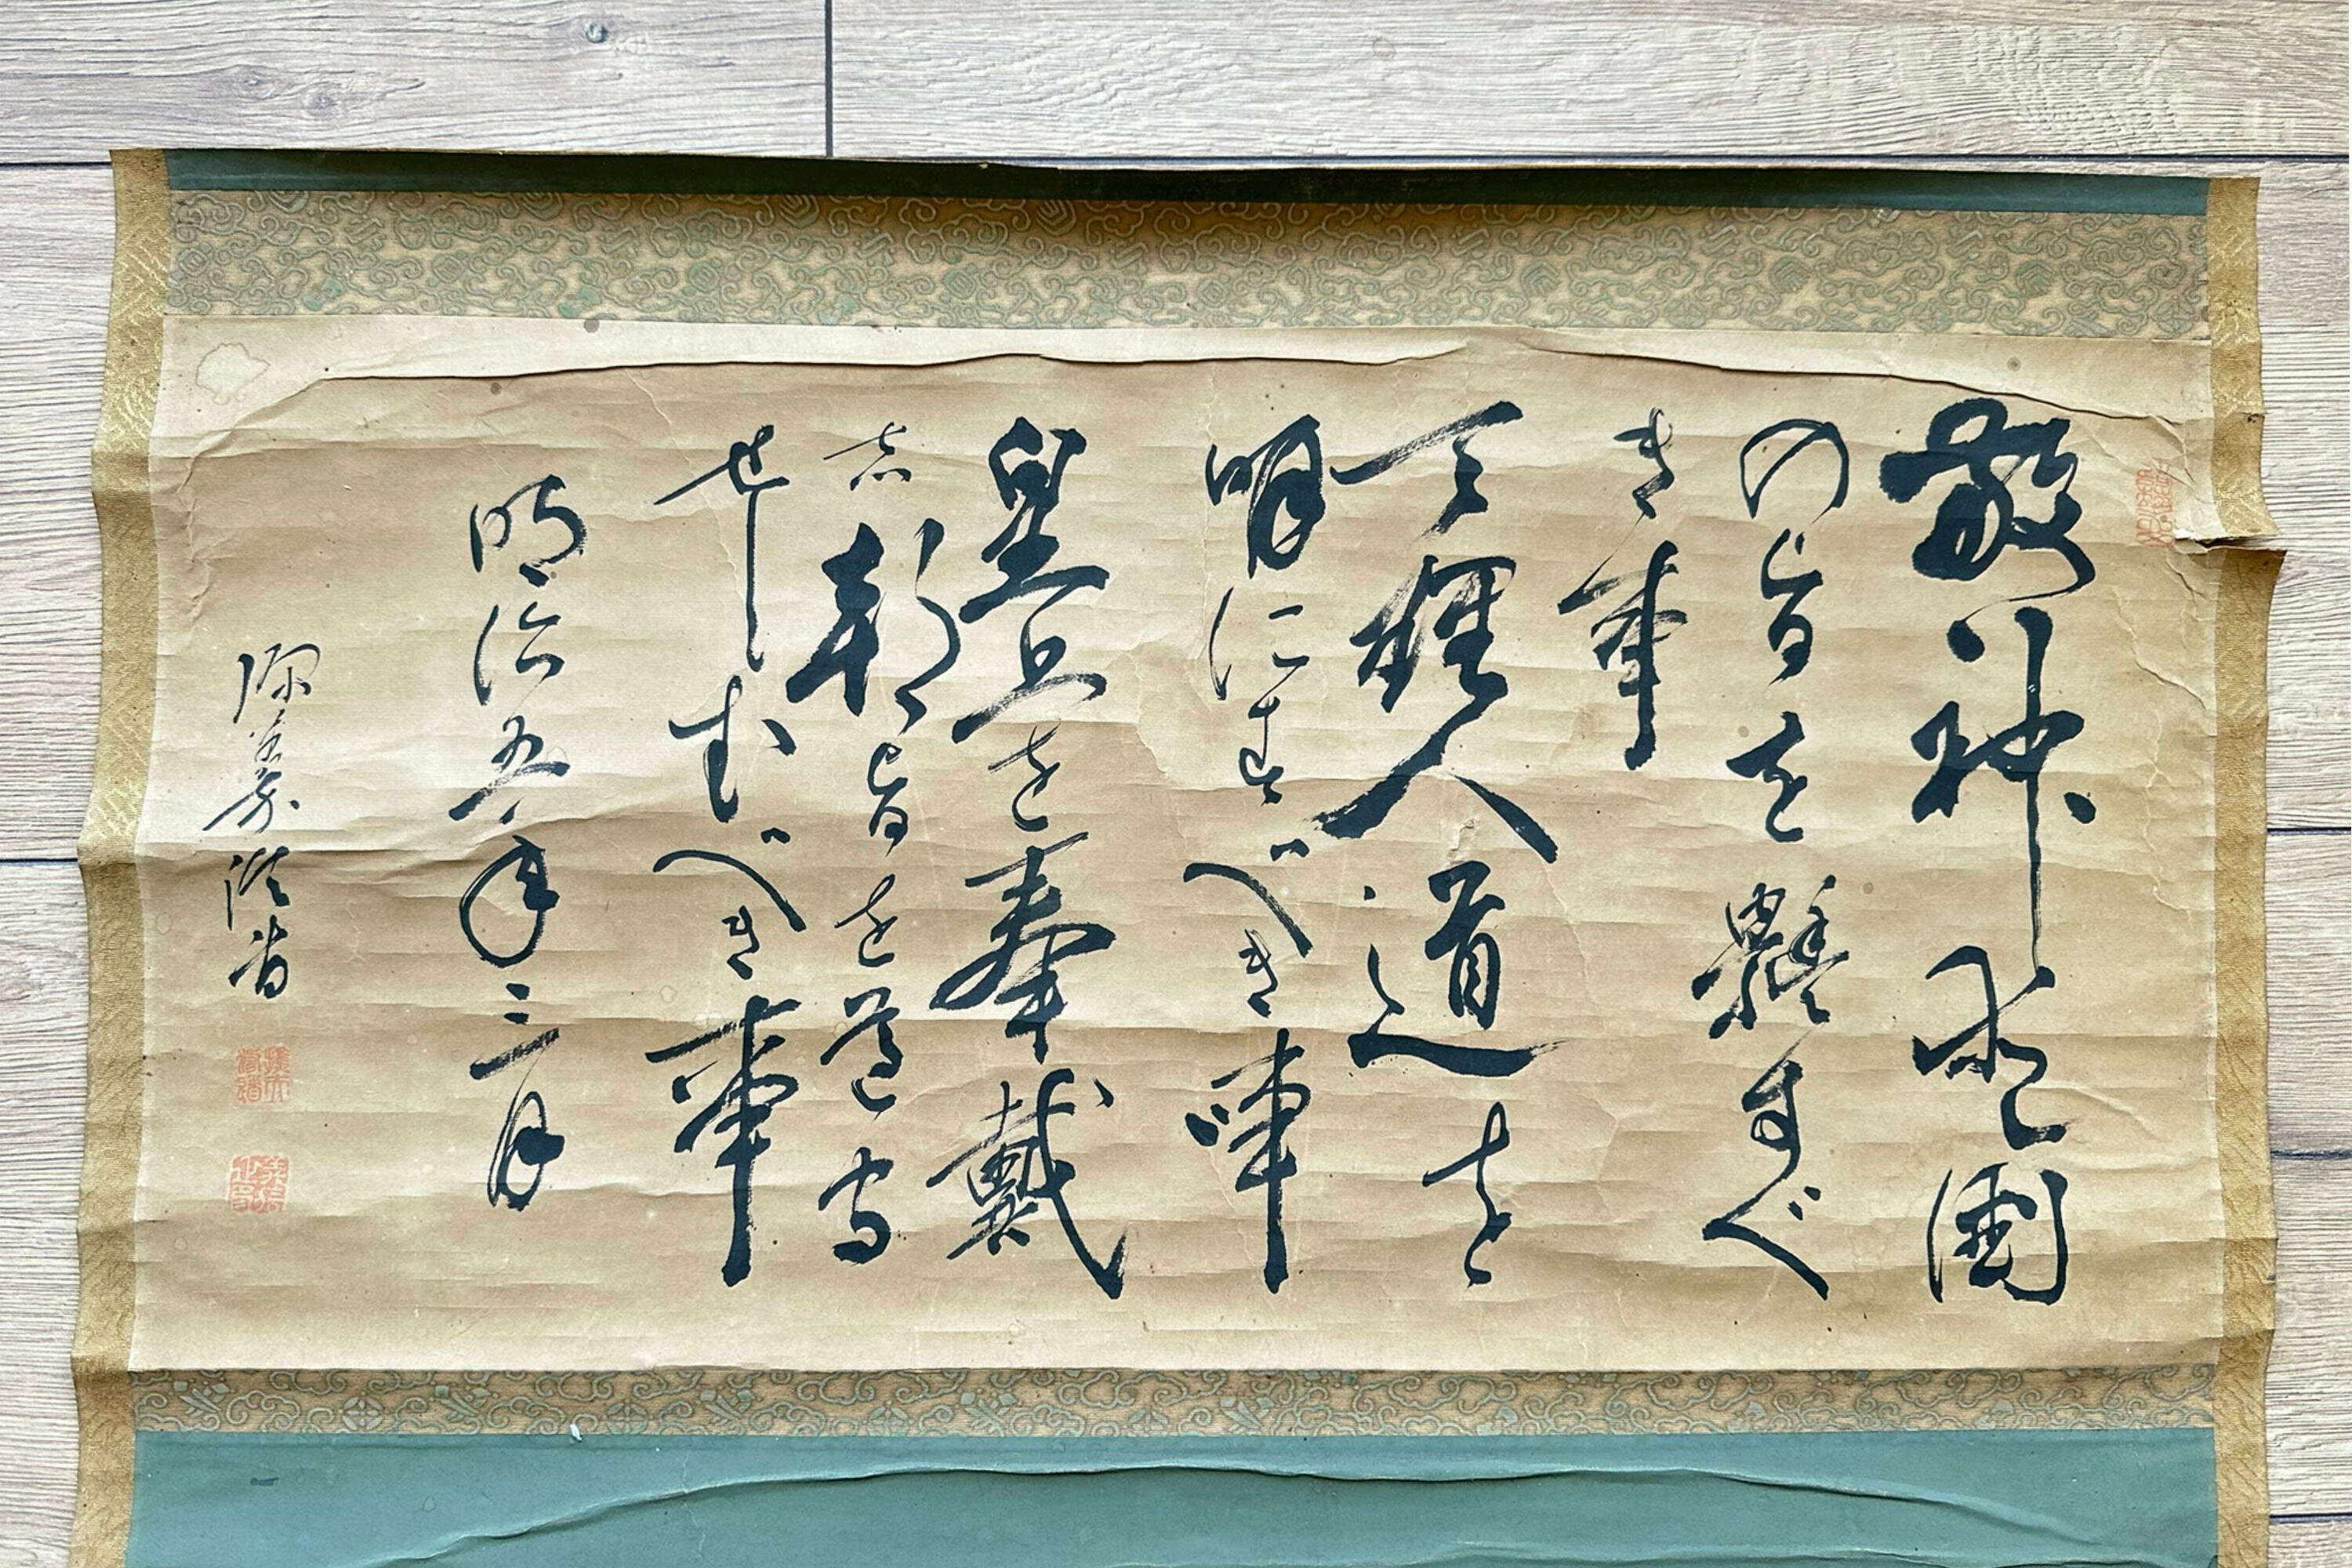 敬神愛國
の旨を體すべ
き事
天理人道を
明にすべき事
皇上を奉戴
し朝旨を遵守
せしむべき事
明治五年三月